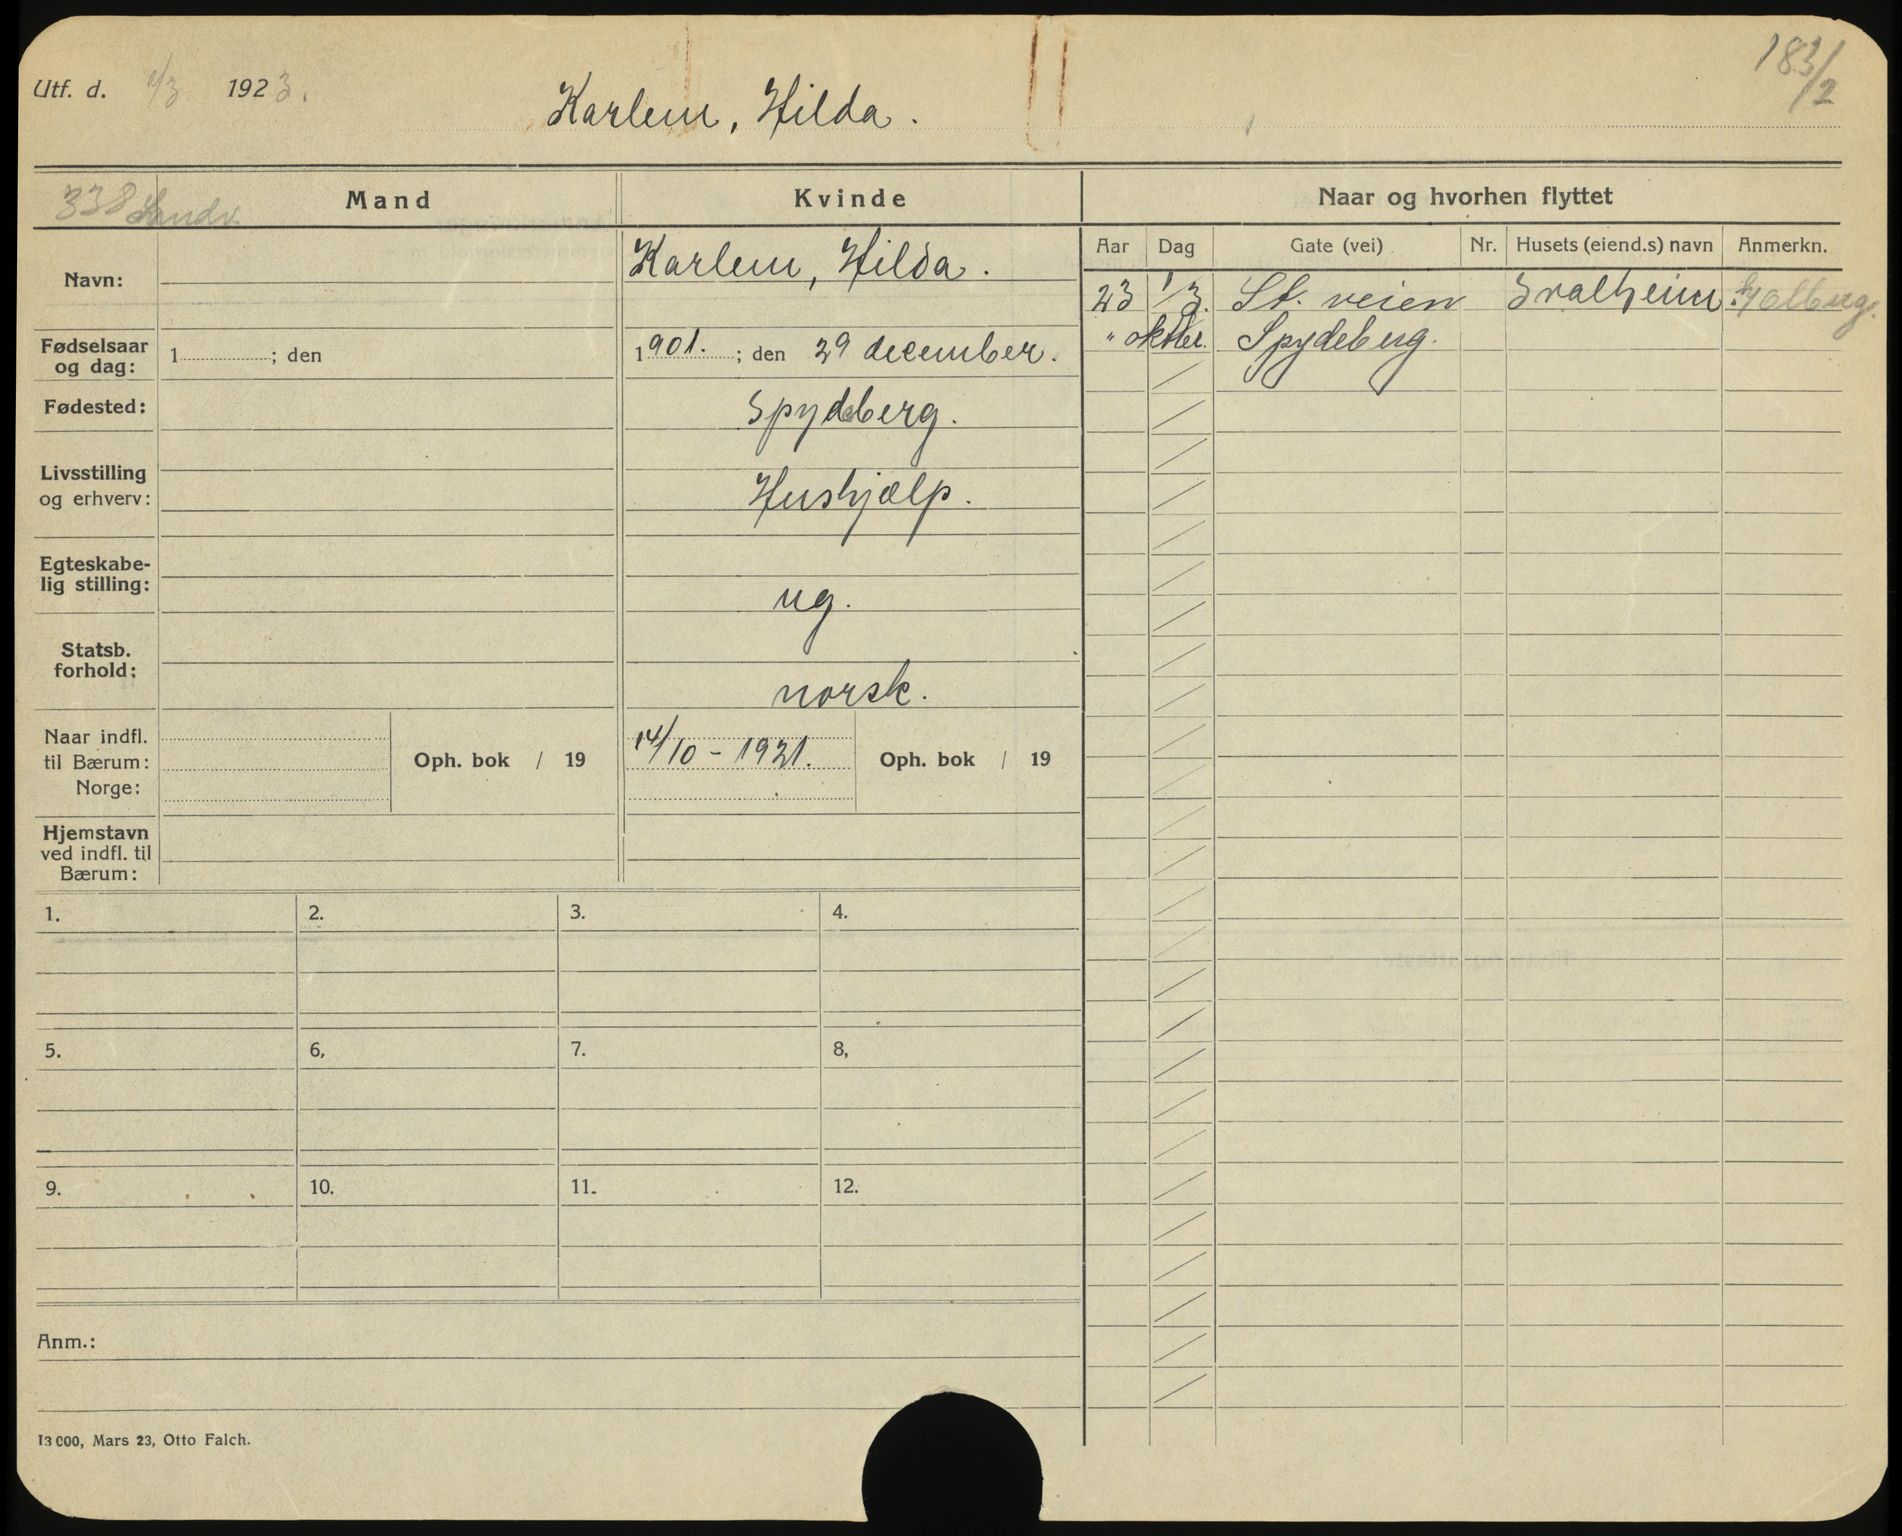 183/2
Utf. d. 1/3 1923.
Karlem, Hilda.
338 Sandv.
Mand
Kvinde
Naar og hvorhen flyttet
Aar Dag Gate (vei) Nr. Husets (eiend.s) navn Anmerkn.
Navn:
Karlem, Hilda.
23 1/3. St. veien Svalheim
" oktbr. Spydeberg.
Fødselsaar
og dag:
1 ; den
1901. ; den 29 december.
Fødested:
Spydeberg.
Livsstilling
og erhverv:
Hushjælp.
Egteskabe-
lig stilling:
ug.
Statsb.
forhold:
norsk.
Naar indfl.
til Bærum:
Norge:
Oph. bok / 19
14/10 - 1921.
Oph. bok / 19
Hjemstavn
ved indfl. til
Bærum:
1. 2. 3. 4.
5. 6, 7. 8,
9. 10. 11. 12.
Anm.:
13 000, Mars 23, Otto Falch.